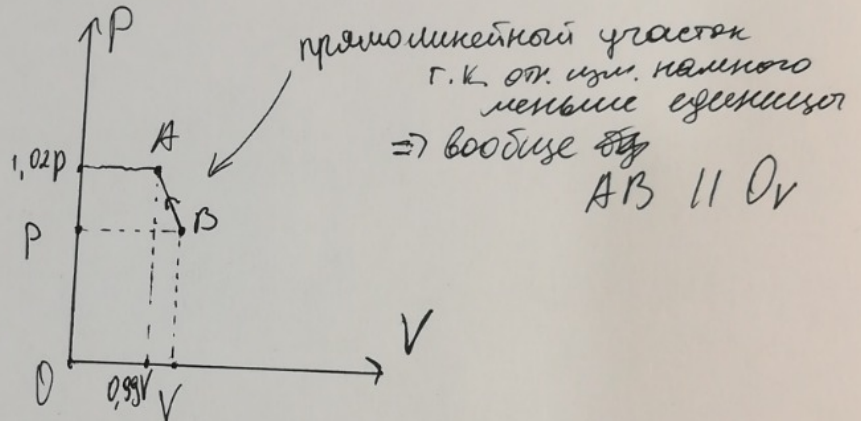 P
прямолинейный участок
т.к. отн. изм. намного
меньше единицы
=> вообще
AB || Ov
A
1,02p
P
B
V
0
0,99V
V